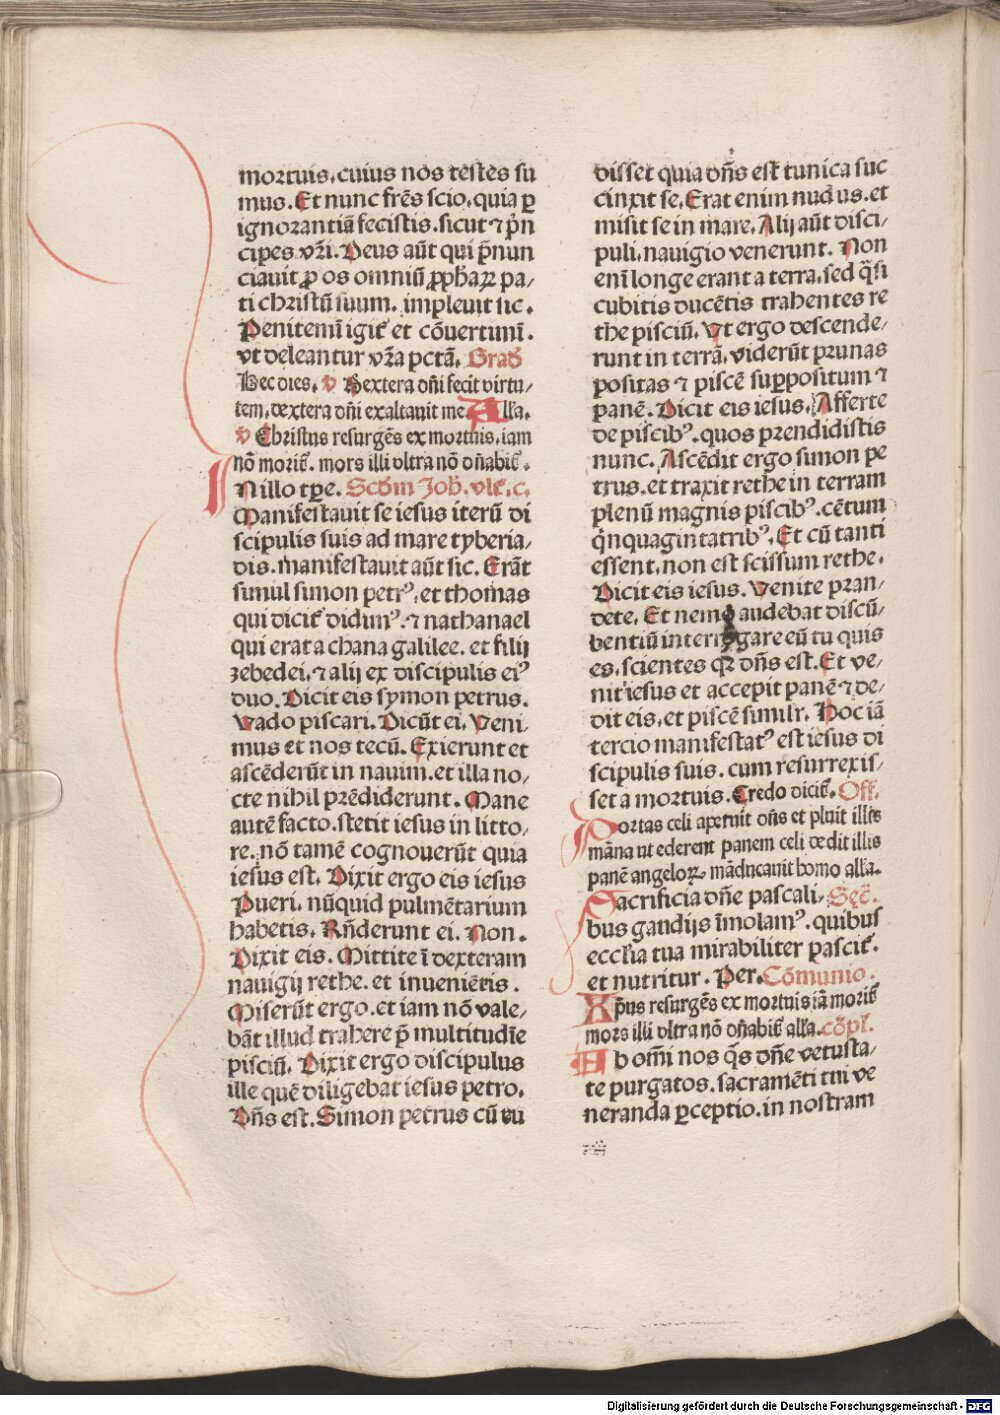 mortuis. cuius nos testes su
mus. Et nunc frēs scio. quia ꝑ
ignorantiā fecistis. sicut ⁊ prīn
cipes vr̄i. Deus aūt qui p̄nun
ciauit ꝓ os omniū ꝓphaꝝ pa/
ti christū suum. impleuit sic.
Penitemī igit᷑ et cōuertimī.
vt deleantur vr̄a pctā. Grad᷑
Hec dies. v Dextera dn̄i fecit virtu/
tem. dextera dn̄i exaltauit me. Alla.
v Christus resurgēs ex mortuis. iam
nō morit᷑. mors illi vltra nō dn̄abit᷑.
IN illo tꝑe. Scd᷑m Joh̄. vlt᷑. c.
Manifestauit se iesus iterū di
scipulis suis ad mare tyberia/
dis. manifestauit aūt sic. Erāt
simul simon petrꝰ. et thomas
qui dicit᷑ didimꝰ. ⁊ nathanael
qui erat a chana galilee. et filij
zebedei. ⁊ alij ex discipulis eiꝰ
duo. Dicit eis symon petrus.
Vado piscari. Dicūt ei. Veni
mus et nos tecū. Exierunt et
ascēderūt in nauim. et illa no/
cte nihil prēdiderunt. Mane
autē facto. stetit iesus in litto/
re. nō tamē cognouerūt quia
iesus est. Dixit ergo eis iesus
Pueri. nūquid pulmētarium
habetis. Rn̄derunt ei. Non.
Dixit eis. Mittite ī dexteram
nauigij rethe. et inuenietis.
Miserūt ergo. et iam nō vale/
bāt illud trahere p̄ multitudīe
pisciū. Dixit ergo discipulus
ille quē diligebat iesus petro.
Dn̄s est. Simon petrus cū au
disset quia dn̄s est tunica suc
cinxit se. Erat enim nudus. et
misit se in mare. Alij aūt disci/
puli. nauigio venerunt. Non
enī longe erant a terra. sed q̄si
cubitis ducētis trahentes re
the pisciū. Vt ergo descende/
runt in terrā. viderūt prunas
positas ⁊ piscē suꝑpositum ⁊
panē. Dicit eis iesus. Afferte
de piscibꝰ. quos prendidistis
nunc. Ascēdit ergo simon pe
trus. et traxit rethe in terram
plenū magnis piscibꝰ. cētum
q̇nquagintatribꝰ. Et cū tanti
essent. non est scissum rethe.
Dicit eis iesus. Venite pran/
dete. Et nemo audebat discū/
bentiū interrogare eū tu quis
es. scientes qꝛ dn̄s est. Et ve/
nit iesus et accepit panē ⁊ de/
dit eis. et piscē similr. Hoc iā
tercio manifestatꝰ est iesus di
scipulis suis. cum resurrexis/
set a mortuis. Credo dicit᷑. Off.
Portas celi aperuit dn̄s et pluit illis
māna ut ederent panem celi dedit illis
panē angeloꝝ. māducauit homo alla.
Sacrificia dn̄e pascali. Sec̄.
bus gaudijs īmolamꝰ. quibus
ecclīa tua mirabiliter pascit᷑.
et nutritur. Per. Cōmunio.
Xp̄us resurgēs ex mortuis iā morit᷑
mors illi vltra nō dn̄abit᷑ alla. cōpl᷑.
Ab om̄i nos q̄s dn̄e vetusta/
te purgatos. sacramēti tui ve
neranda ꝑceptio. in nostram
Digitalisierung gefördert durch die Deutsche Forschungsgemeinschaft - DFG